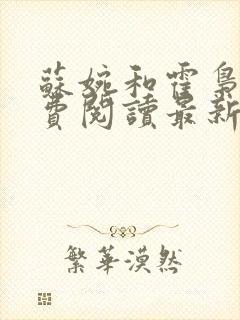 蘇婉和霍梟
費閱讀最新
繁華漠然